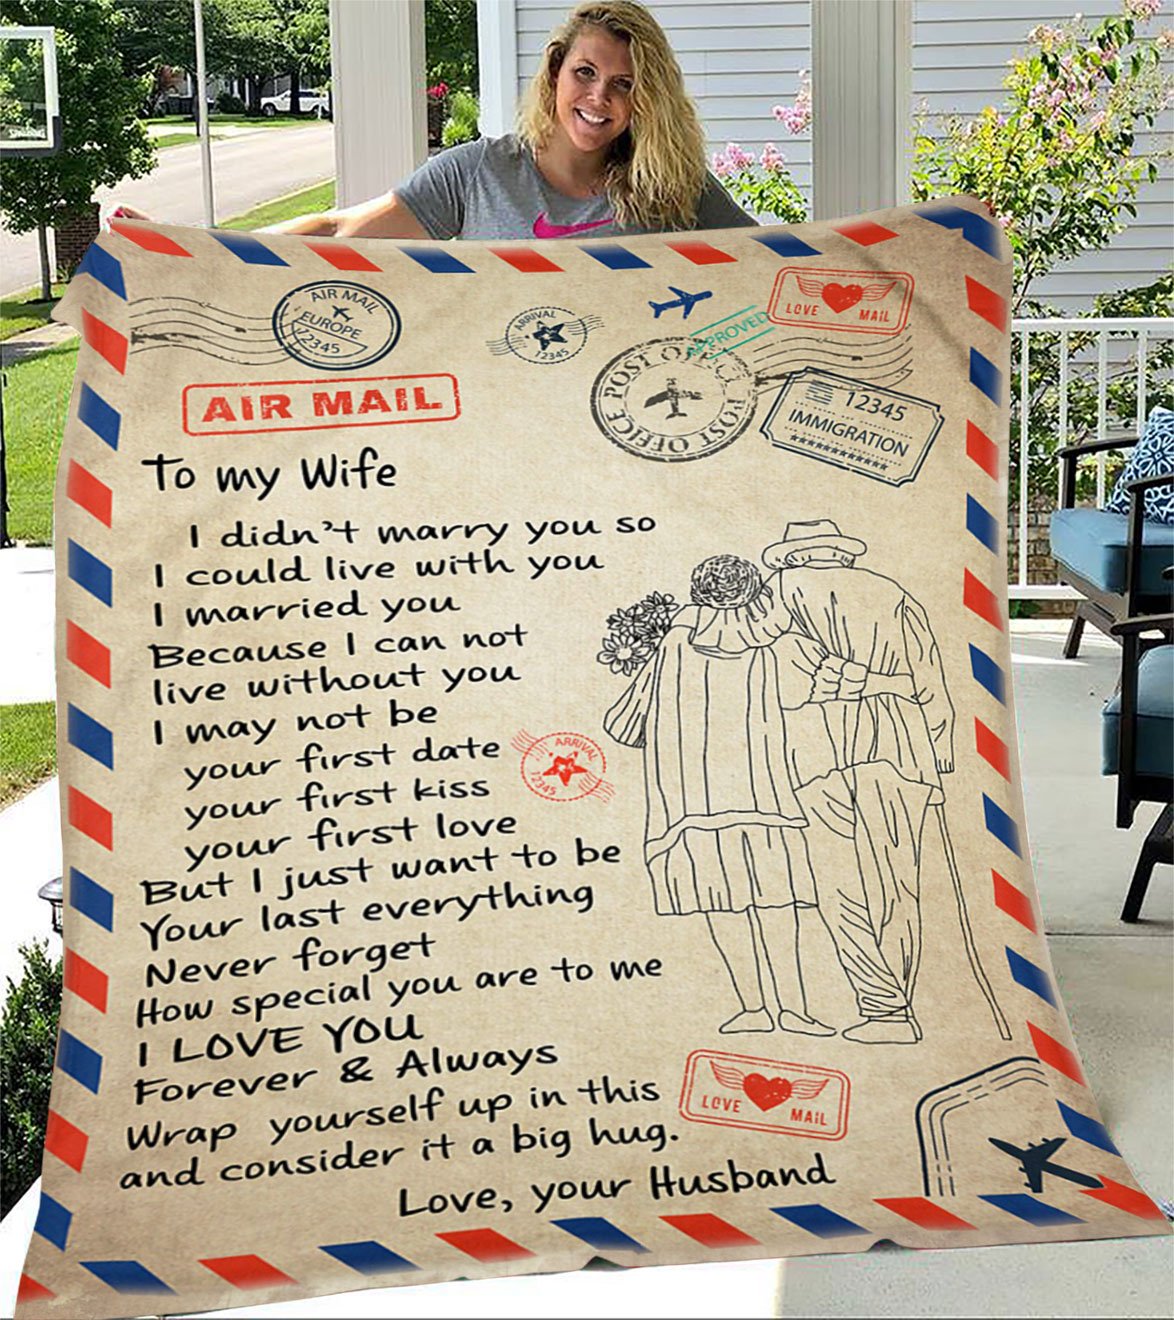 AIR MAIL
EUROPE
12345
ARRIVAL
12345
APPROVED
LOVE MAIL
POST OFFICE POST OFFICE
12345
IMMIGRATION
AIR MAIL
To my Wife
I didn't marry you so
I could live with you
I married you
Because I can not
live without you
I may not be
your first date
your first kiss
your first love
But I just want to be
Your last everything
Never forget
How special you are to me
I LOVE YOU
Forever & Always
Wrap yourself up in this
and consider it a big hug.
Love, your Husband
ARRIVAL
12345
LOVE MAIL